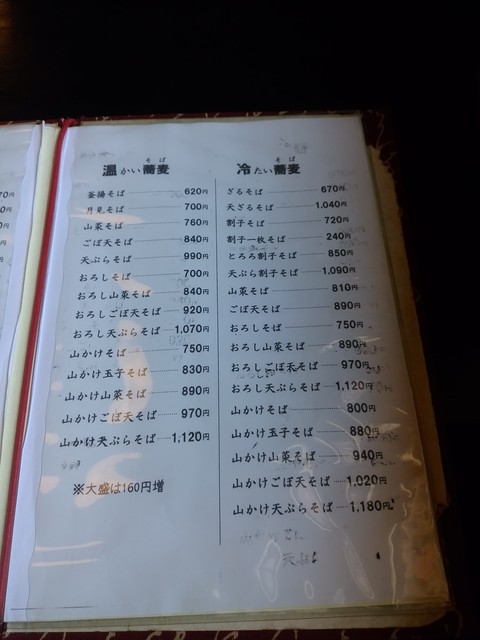 温かい蕎麦
釜揚そば 620円
月見そば 700円
山菜そば 760円
ごぼ天そば 840円
天ぷらそば 990円
おろしそば 700円
おろし山菜そば 840円
おろしごぼ天そば 920円
おろし天ぷらそば 1,070円
山かけそば 750円
山かけ玉子そば 830円
山かけ山菜そば 890円
山かけごぼ天そば 970円
山かけ天ぷらそば 1,120円
※大盛は160円増
冷たい蕎麦
ざるそば 670円
天ざるそば 1,040円
割子そば 720円
割子一枚そば 240円
とろろ割子そば 850円
天ぷら割子そば 1,090円
山菜そば 810円
ごぼ天そば 890円
おろしそば 750円
おろし山菜そば 890円
おろしごぼ天そば 970円
おろし天ぷらそば 1,120円
山かけそば 800円
山かけ玉子そば 880円
山かけ山菜そば 940円
山かけごぼ天そば 1,020円
山かけ天ぷらそば 1,180円